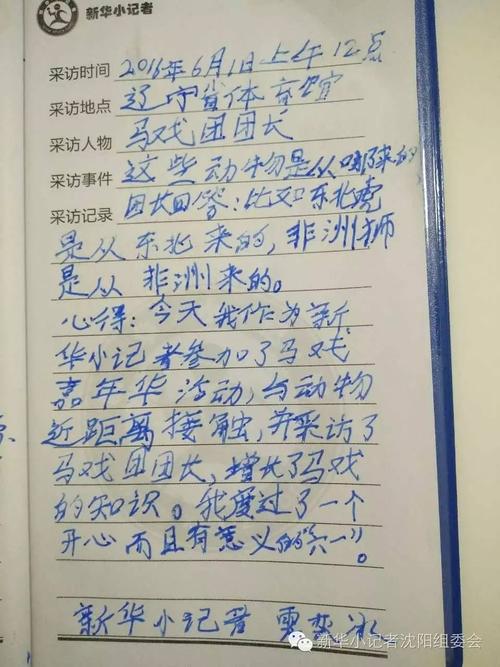 新华小记者
采访时间 2016年6月1日上午12点
采访地点 辽宁省体育馆
采访人物 马戏团团长
采访事件 这些动物是从哪来的
采访记录 团长回答:比如东北虎
是从东北来的,非洲狮
是从非洲来的。
心得:今天我作为新
华小记者参加了马戏
嘉年华活动,与动物
近距离接触,并采访了
马戏团团长,增长了马戏
的知识。我度过了一个
开心而且有意义的“六一”。
新华小记者
新华小记者沈阳组委会